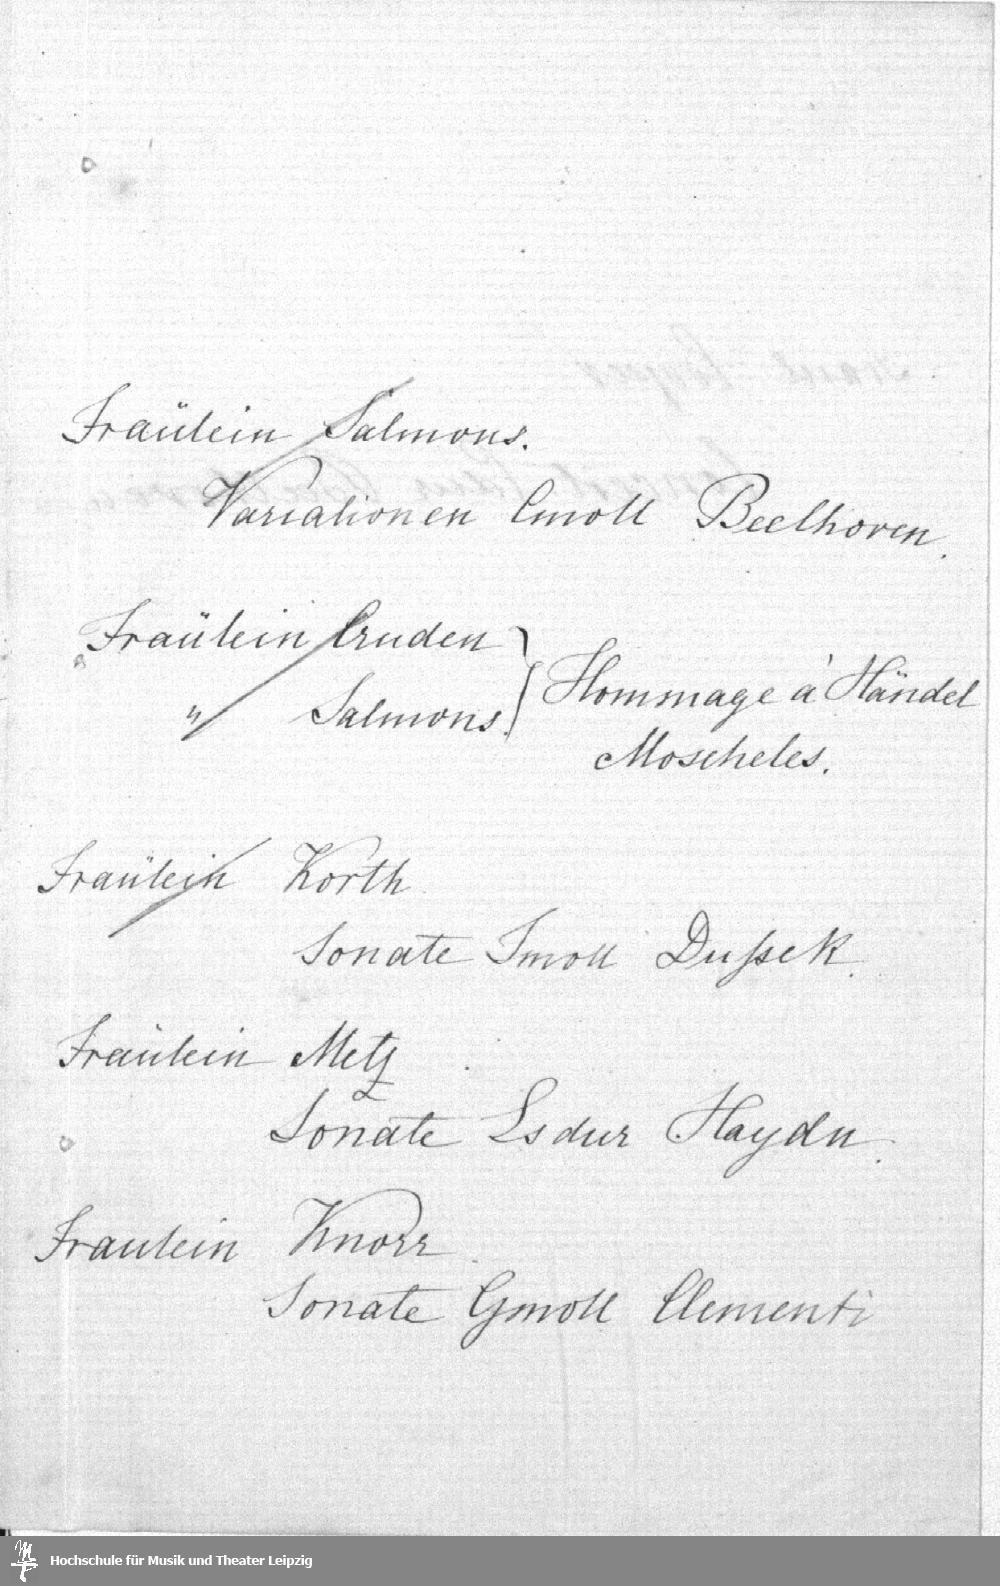 Fräulein Salmons.
Variationen Cmoll Beethoven.
Fräulein Cruden
" Salmons.
Hommage à Händel
Moscheles.
Fräulein Korth
Sonate Fmoll Dußek.
Fräulein Metz
Sonate Esdur Haydn.
Fraulein Knorr
Sonate Gmoll Clementi
Hochschule für Musik und Theater Leipzig